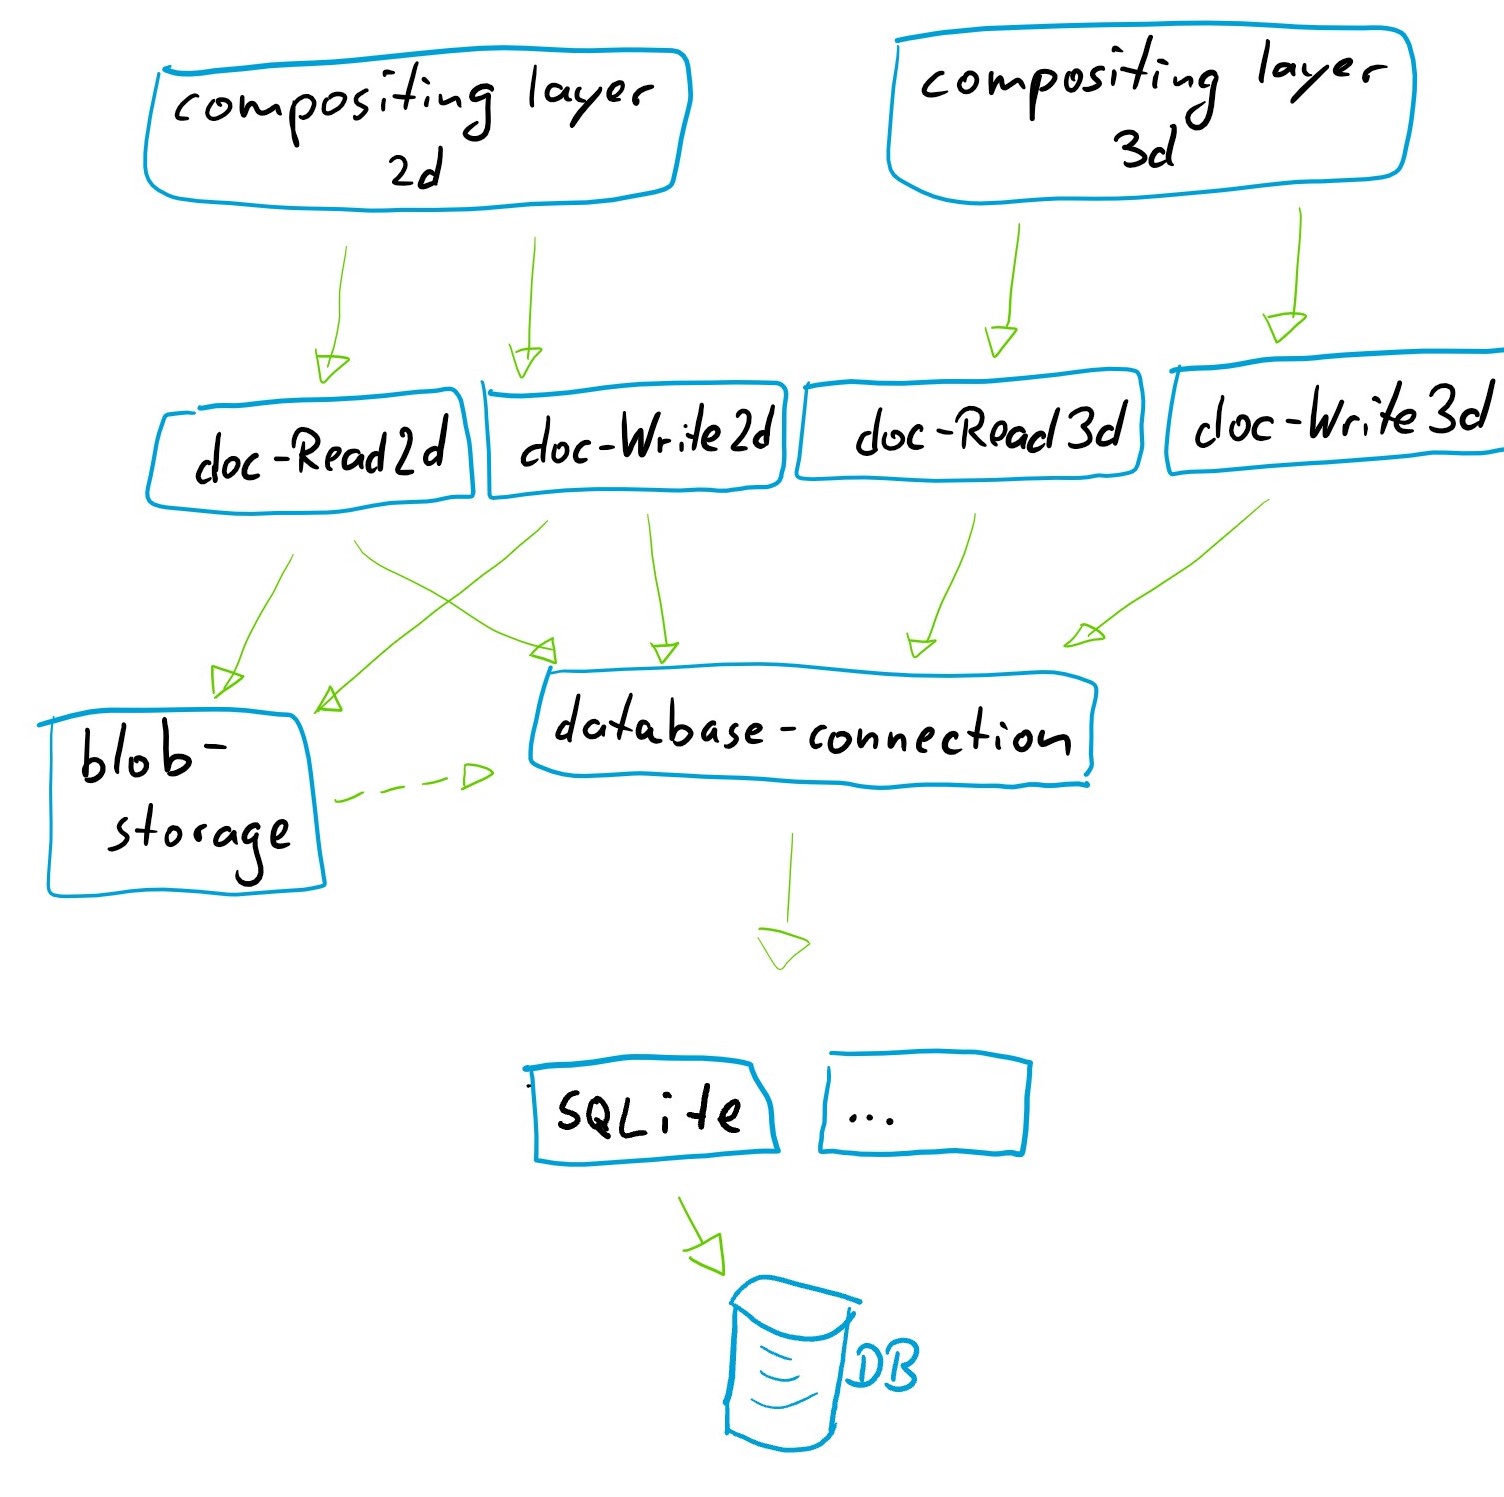 compositing layer
2d
compositing layer
3d
doc-Read2d
doc-Write2d
doc-Read3d
doc-Write3d
blob-
storage
database-connection
SQLite
...
DB